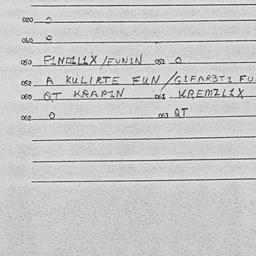 020 0
040 0
050 FINFILIX/FUNIN 051 0
052 A KULIRTE FUN/GIFARBTI FU
060 QT KRAPIN 061 KREMZLIX
062 0 063 QT